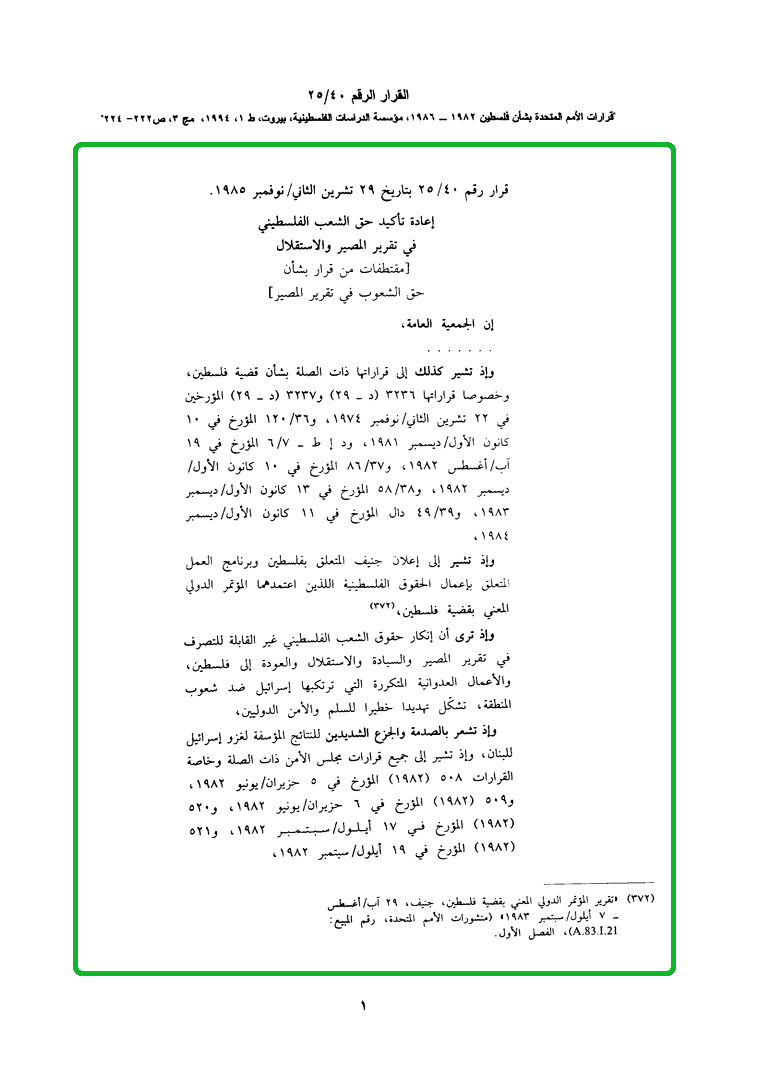 القرار الرقم ٢٥/٤٠
"قرارات الأمم المتحدة بشأن فلسطين ١٩٨٢ ــ ١٩٨٦، مؤسسة الدراسات الفلسطينية، بيروت، ط ١، ١٩٩٤، مج ٣، ص٢٢٢– ٢٢٤"
قرار رقم ٢٥/٤٠ بتاريخ ٢٩ تشرين الثاني/نوفمبر ١٩٨٥.
إعادة تأكيد حق الشعب الفلسطيني
في تقرير المصير والاستقلال
[مقتطفات من قرار بشأن
حق الشعوب في تقرير المصير]
إن الجمعية العامة،
. . . . . . .
وإذ تشير كذلك إلى قراراتها ذات الصلة بشأن قضية فلسطين،
وخصوصا قراراتها ٣٢٣٦ (د ــ ٢٩) و٣٢٣٧ (د ــ ٢٩) المؤرخين
في ٢٢ تشرين الثاني/نوفمبر ١٩٧٤، و١٢٠/٣٦ المؤرخ في ١٠
كانون الأول/ديسمبر ١٩٨١، ود إ ط ــ ٦/٧ المؤرخ في ١٩
آب/أغسطس ١٩٨٢، و٨٦/٣٧ المؤرخ في ١٠ كانون الأول/
ديسمبر ١٩٨٢، و٥٨/٣٨ المؤرخ في ١٣ كانون الأول/ديسمبر
١٩٨٣، و٤٩/٣٩ دال المؤرخ في ١١ كانون الأول/ديسمبر
١٩٨٤،
وإذ تشير إلى إعلان جنيف المتعلق بفلسطين وبرنامج العمل
المتعلق بإعمال الحقوق الفلسطينية اللذين اعتمدهما المؤتمر الدولي
المعني بقضية فلسطين،(٣٧٢)
وإذ ترى أن إنكار حقوق الشعب الفلسطيني غير القابلة للتصرف
في تقرير المصير والسيادة والاستقلال والعودة إلى فلسطين،
والأعمال العدوانية المتكررة التي ترتكبها إسرائيل ضد شعوب
المنطقة، تشكّل تهديدا خطيرا للسلم والأمن الدوليين،
وإذ تشعر بالصدمة والجزع الشديدين للنتائج المؤسفة لغزو إسرائيل
للبنان، وإذ تشير إلى جميع قرارات مجلس الأمن ذات الصلة وخاصة
القرارات ٥٠٨ (١٩٨٢) المؤرخ في ٥ حزيران/يونيو ١٩٨٢،
و٥٠٩ (١٩٨٢) المؤرخ في ٦ حزيران/يونيو ١٩٨٢، و٥٢٠
(١٩٨٢) المؤرخ في ١٧ أيلول/سبتمبر ١٩٨٢، و٥٢١
(١٩٨٢) المؤرخ في ١٩ أيلول/سبتمبر ١٩٨٢،
(٣٧٢) «تقرير المؤتمر الدولي المعني بقضية فلسطين، جنيف، ٢٩ آب/أغسطس
ــ ٧ أيلول/سبتمبر ١٩٨٣» (منشورات الأمم المتحدة، رقم المبيع:
A.83.I.21)، الفصل الأول.
١